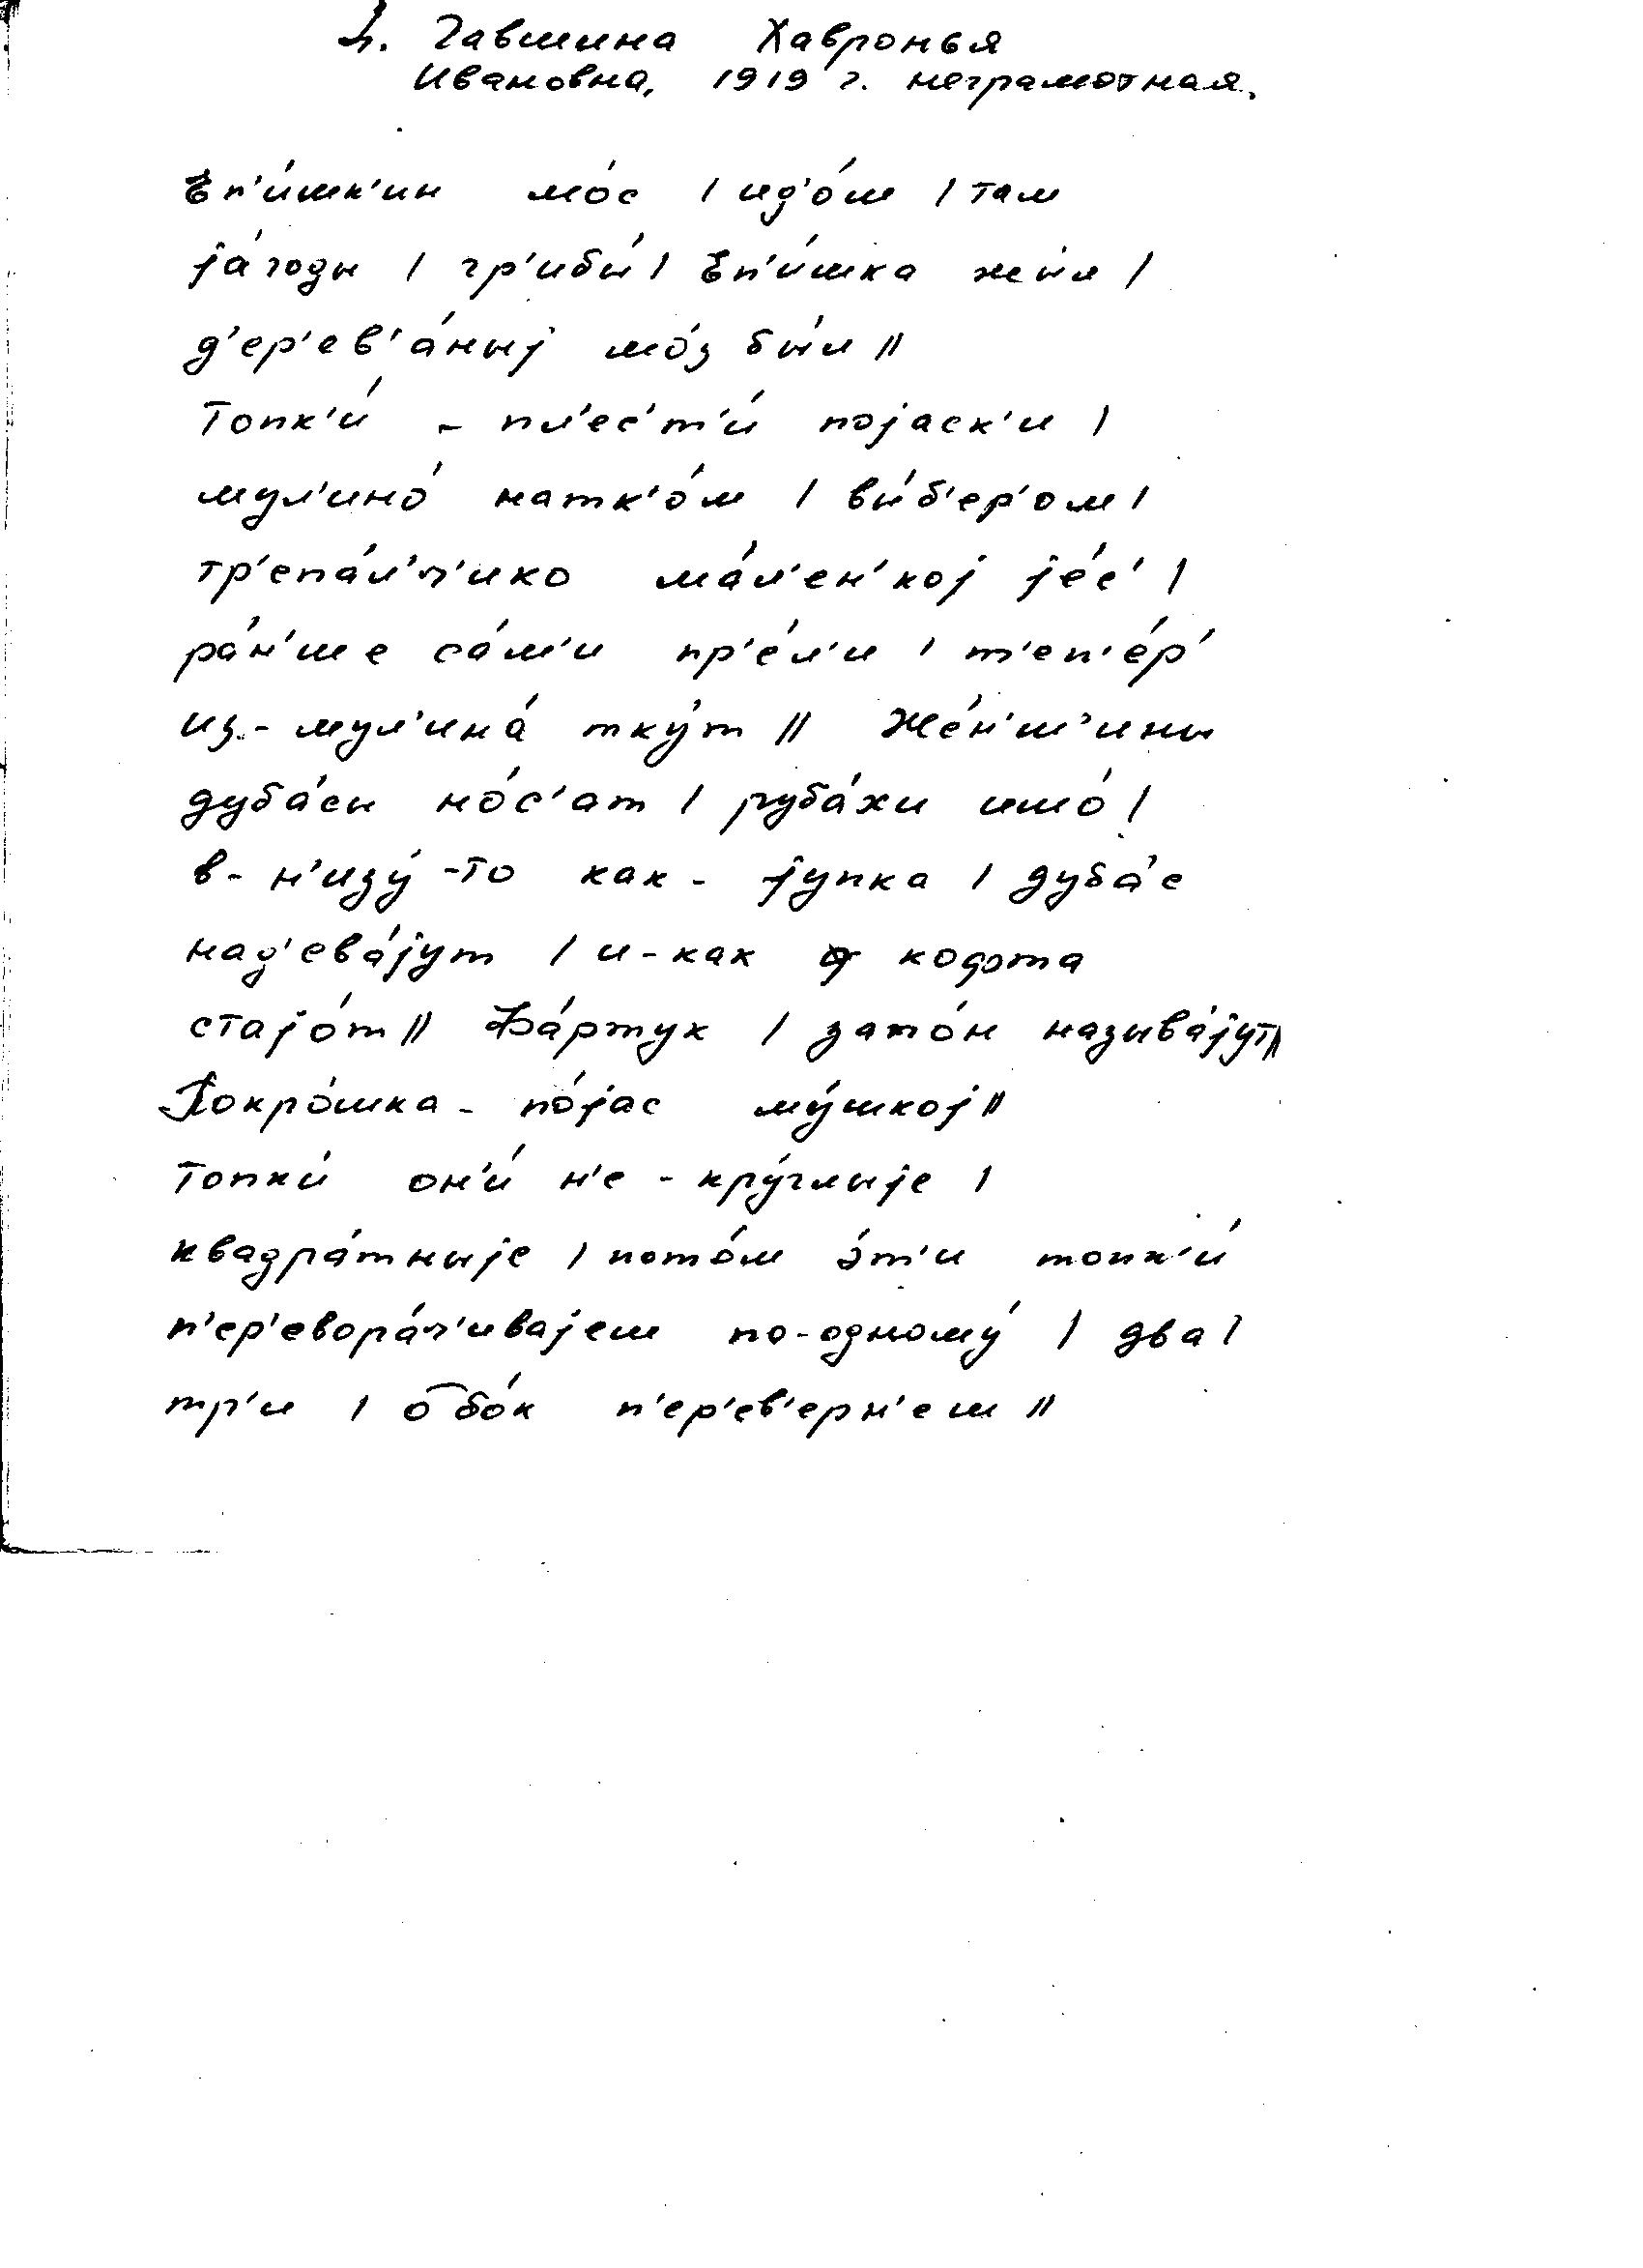 1. Гавшина Хавронья
Ивановна, 1919 г. неграмотная.
Јеп'и́шк'ин мо́с / ид'о́ш / там
jа́годы / гр'ибы́ / Јеп'и́шка жы́л /
д'ер'ев'а́ныj мо́з бы́л //
Топк'и́ - пл'ес'т'и́ поjаск'и /
мул'ино́ натк'о́м / вы́б'ер'ом /
тр'епа́л'ч'ико ма́л'ен'кој jе́с' /
ра́н'ше са́м'и пр'е́л'и / т'еп'е́р'
из-мул'ина́ тку́т // Же́н'ш'ины
дуба́сы но́с'ат / руба́хи ишо́ /
в-н'изу́-то как-jупка / дуба́с
над'ева́jут / и-как кофта
стаjо́т // Фа́ртук / запо́н называ́jут //
Покро́шка - по́jас му́шкоj //
Топки́ он'и́ н'е-кру́глыjе /
квадра́тныjе / пото́м э́т'и топк'и́
п'ер'евора́ч'иваjеш по-одному́ / два /
тр'и / о бо́к п'ер'ев'ерн'еш //